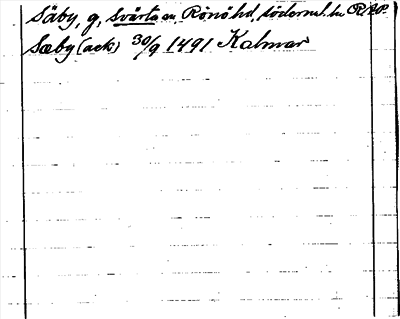 Säby, g, Svärta sn, Rönö hd, Söderml. ln RAP
Sæby (ack) 30/9 1491 Kalmar